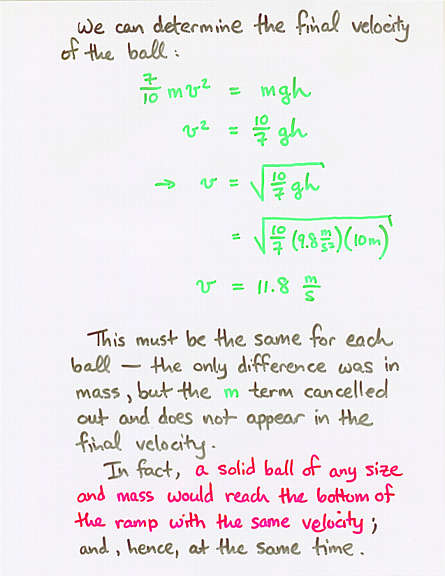 We can determine the final velocity
of the ball:
7/10 mv² = mgh
v² = 10/7 gh
→ v = √(10/7 gh)
= √(10/7 (9.8 m/s²)(10m))
v = 11.8 m/s
This must be the same for each
ball — the only difference was in
mass, but the m term cancelled
out and does not appear in the
final velocity.
In fact, a solid ball of any size
and mass would reach the bottom of
the ramp with the same velocity;
and, hence, at the same time.